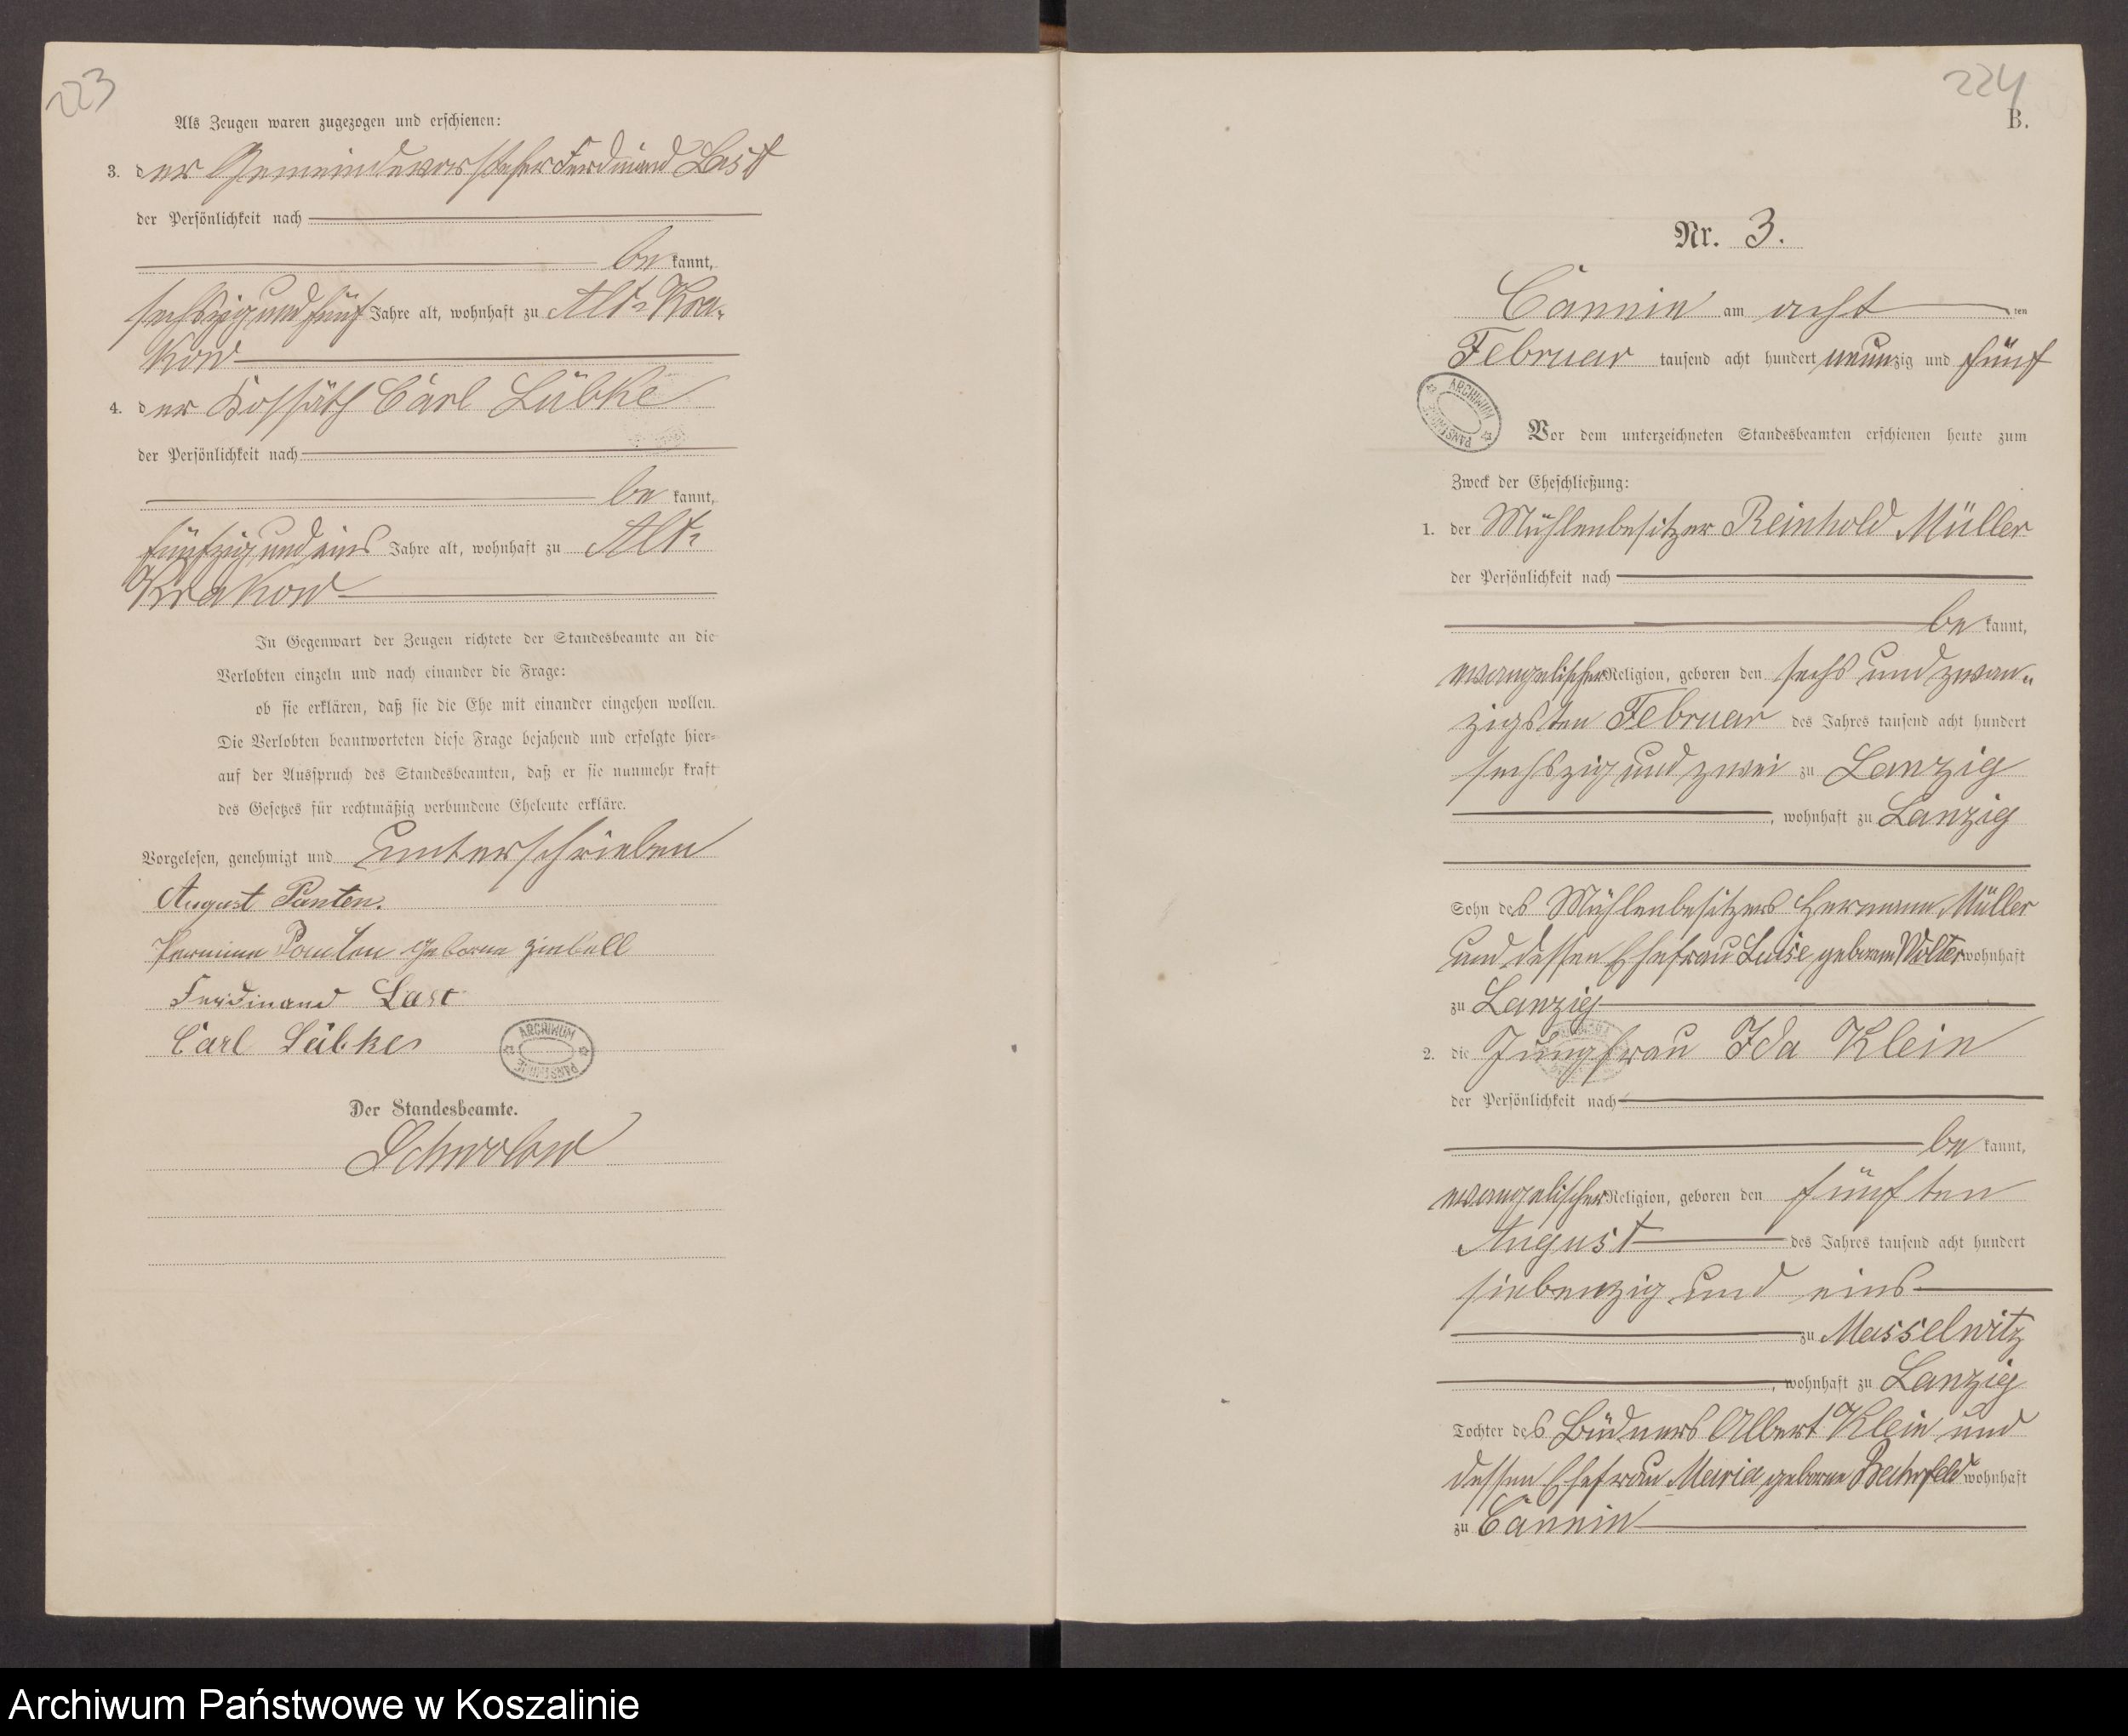 223
Als Zeugen waren zugezogen und erschienen:
3. der Gemeindevorsteher Ferdinand Last
der Persönlichkeit nach
bekannt,
sechszig und fünf Jahre alt, wohnhaft zu Alt-Kra-
kow
4. der Kossäth Carl Lübke
der Persönlichkeit nach
bekannt,
fünfzig und eins Jahre alt, wohnhaft zu Alt-
Krakow
In Gegenwart der Zeugen richtete der Standesbeamte an die
Verlobten einzeln und nach einander die Frage:
ob sie erklären, daß sie die Ehe mit einander eingehen wollen.
Die Verlobten beantworteten diese Frage bejahend und erfolgte hier-
auf der Ausspruch des Standesbeamten, daß er sie nunmehr kraft
des Gesetzes für rechtmäßig verbundene Eheleute erkläre.
Vorgelesen, genehmigt und unterschrieben
August Panten.
Hermine Panten geborne Ziebell
Ferdinand Last
Carl Lübke
ARCHIWUM PAŃSTWOWE
Der Standesbeamte.
Schwolow
224
B.
Nr. 3.
Cannin am acht ten
Februar tausend acht hundert neunzig und fünf
ARCHIWUM PAŃSTWOWE
Vor dem unterzeichneten Standesbeamten erschienen heute zum
Zweck der Eheschließung:
1. der Mühlenbesitzer Reinhold Müller
der Persönlichkeit nach
bekannt,
evangelischer Religion, geboren den sechs und zwan-
zigsten Februar des Jahres tausend acht hundert
sechszig und zwei zu Lanzig
, wohnhaft zu Lanzig
Sohn des Mühlenbesitzers Hermann Müller
und dessen Ehefrau Luise geboren Wolter wohnhaft
zu Lanzig
2. die Jungfrau Ida Klein
der Persönlichkeit nach
bekannt,
evangelischer Religion, geboren den fünften
August des Jahres tausend acht hundert
siebenzig und eins
zu Masselwitz
, wohnhaft zu Lanzig
Tochter des Büdners Albert Klein und
dessen Ehefrau Maria geborne wohnhaft
zu Cannin
Archiwum Państwowe w Koszalinie